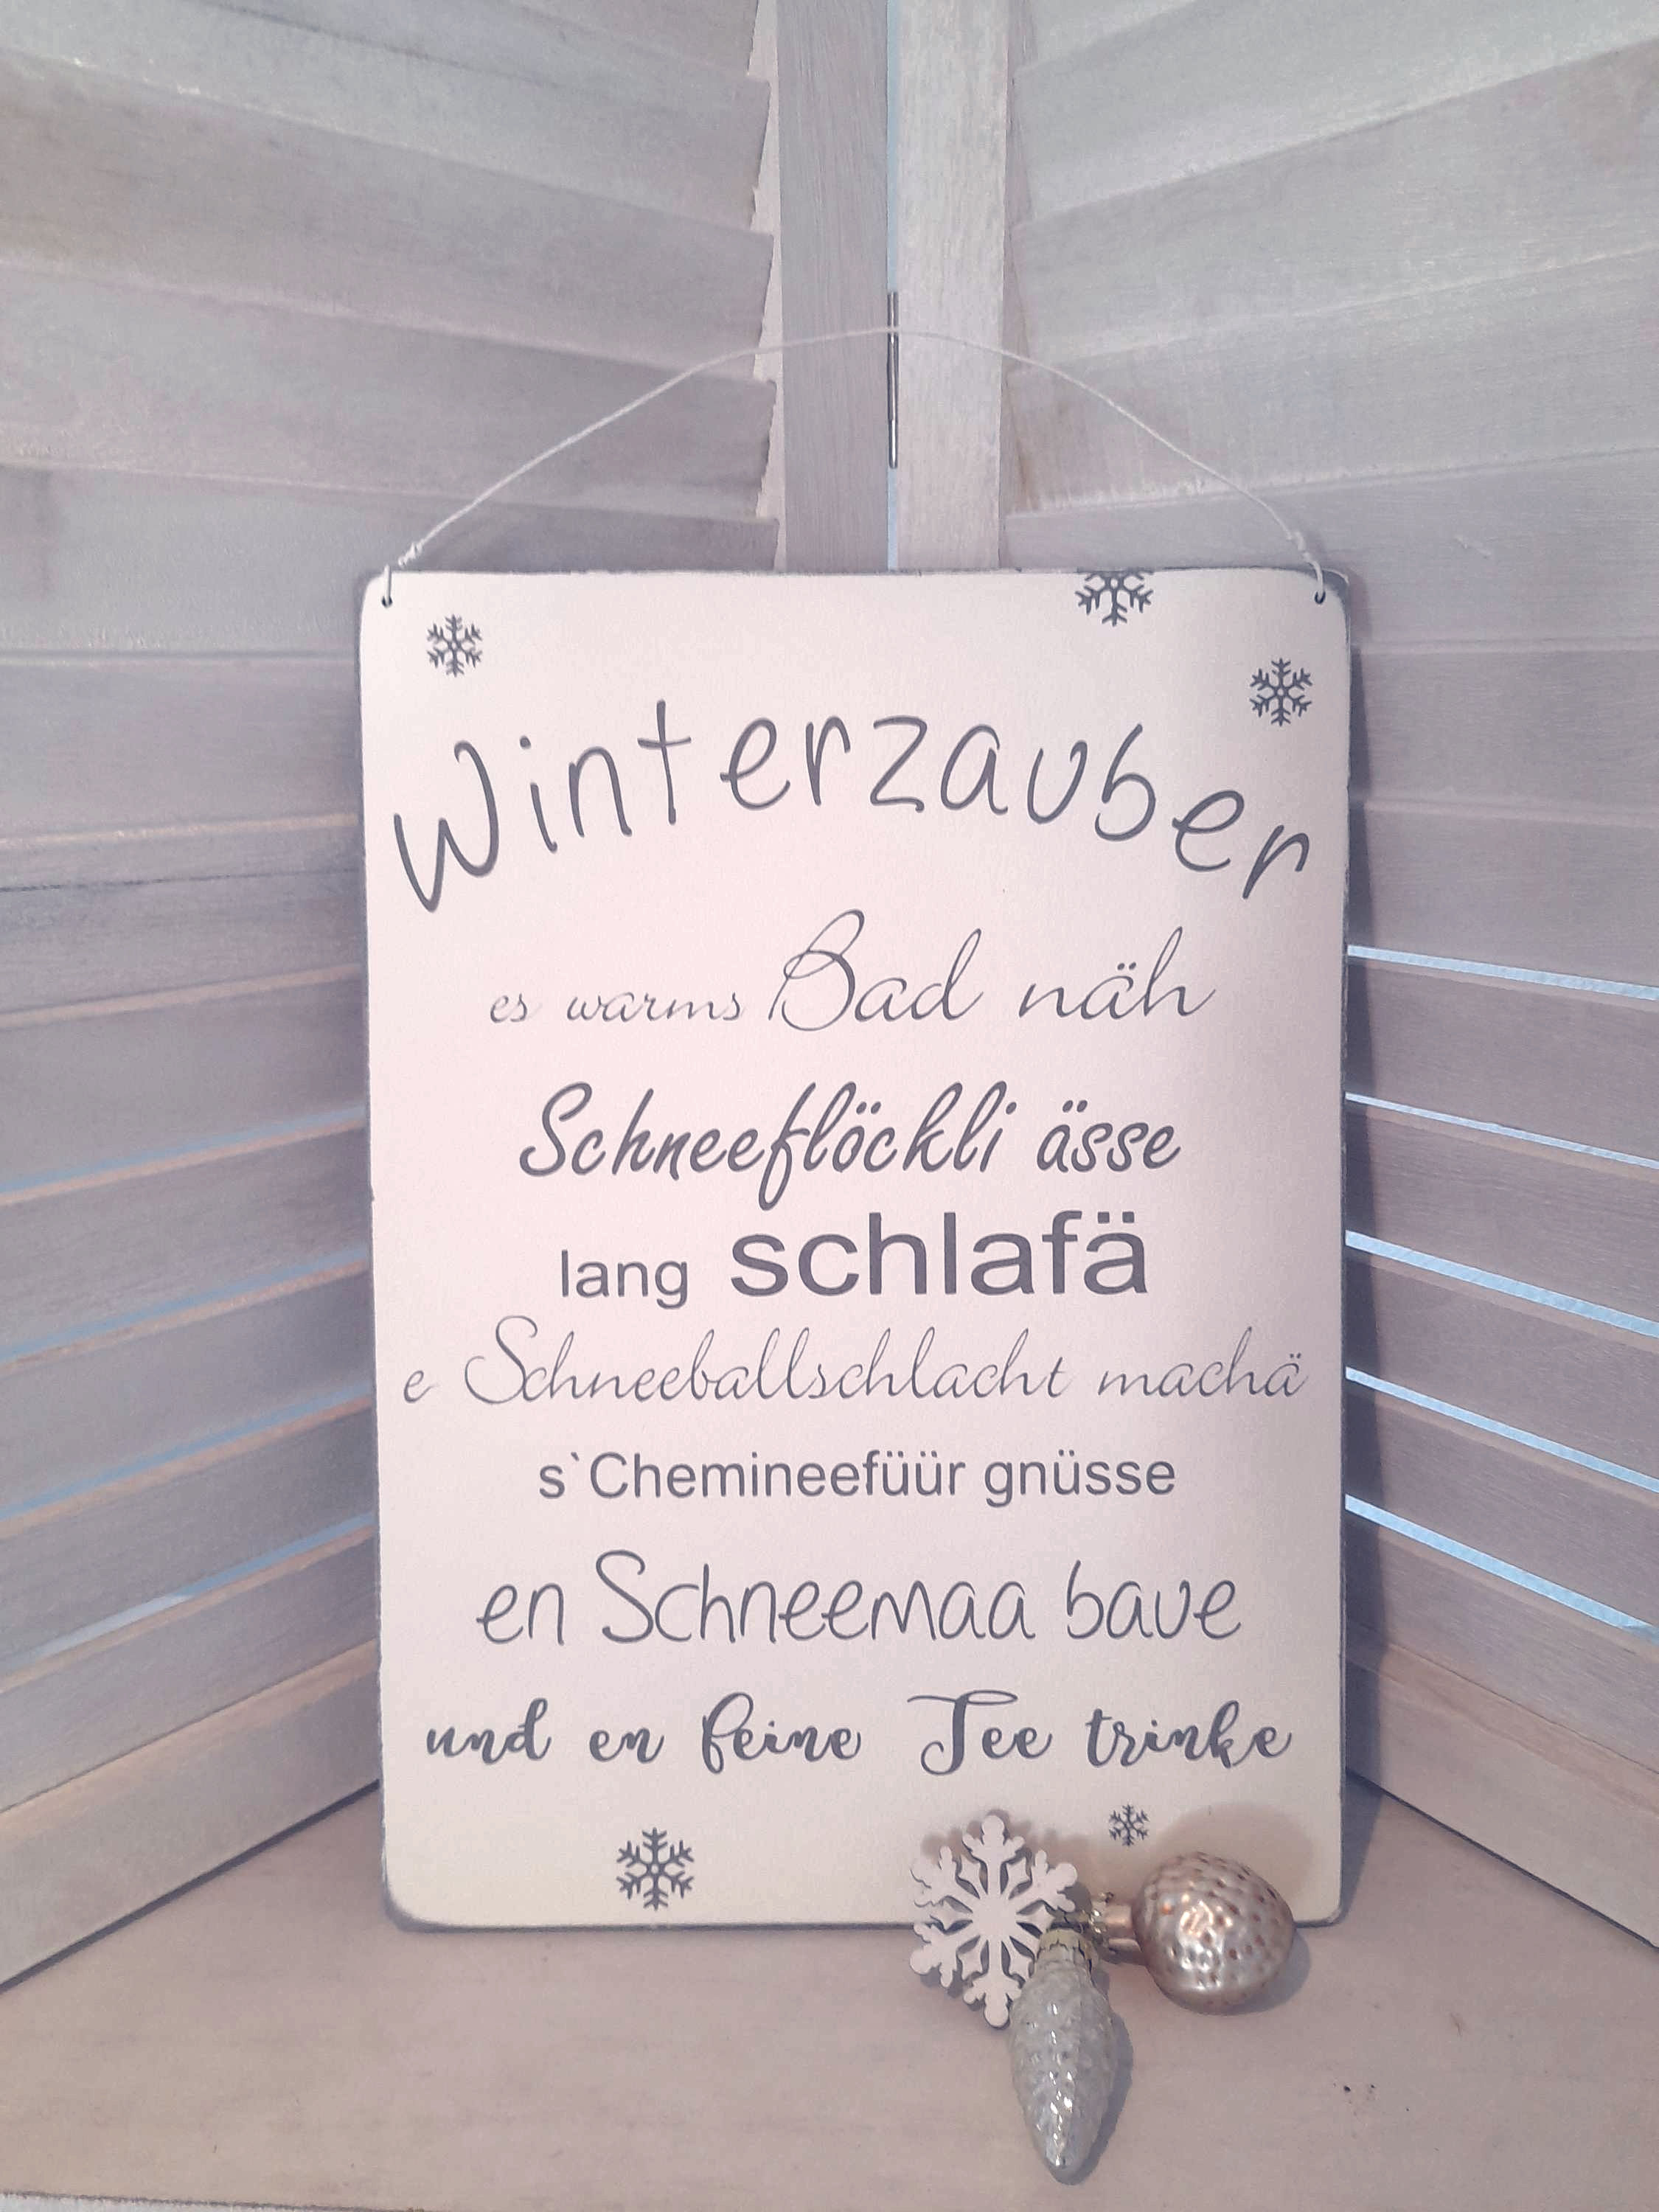 Winterzauber
es warms Bad näh
Schneeflöckli ässe
lang schlafä
e Schneeballschlacht machä
s`Chemineefüür gnüsse
en Schneemaa baue
und en feine Tee trinke